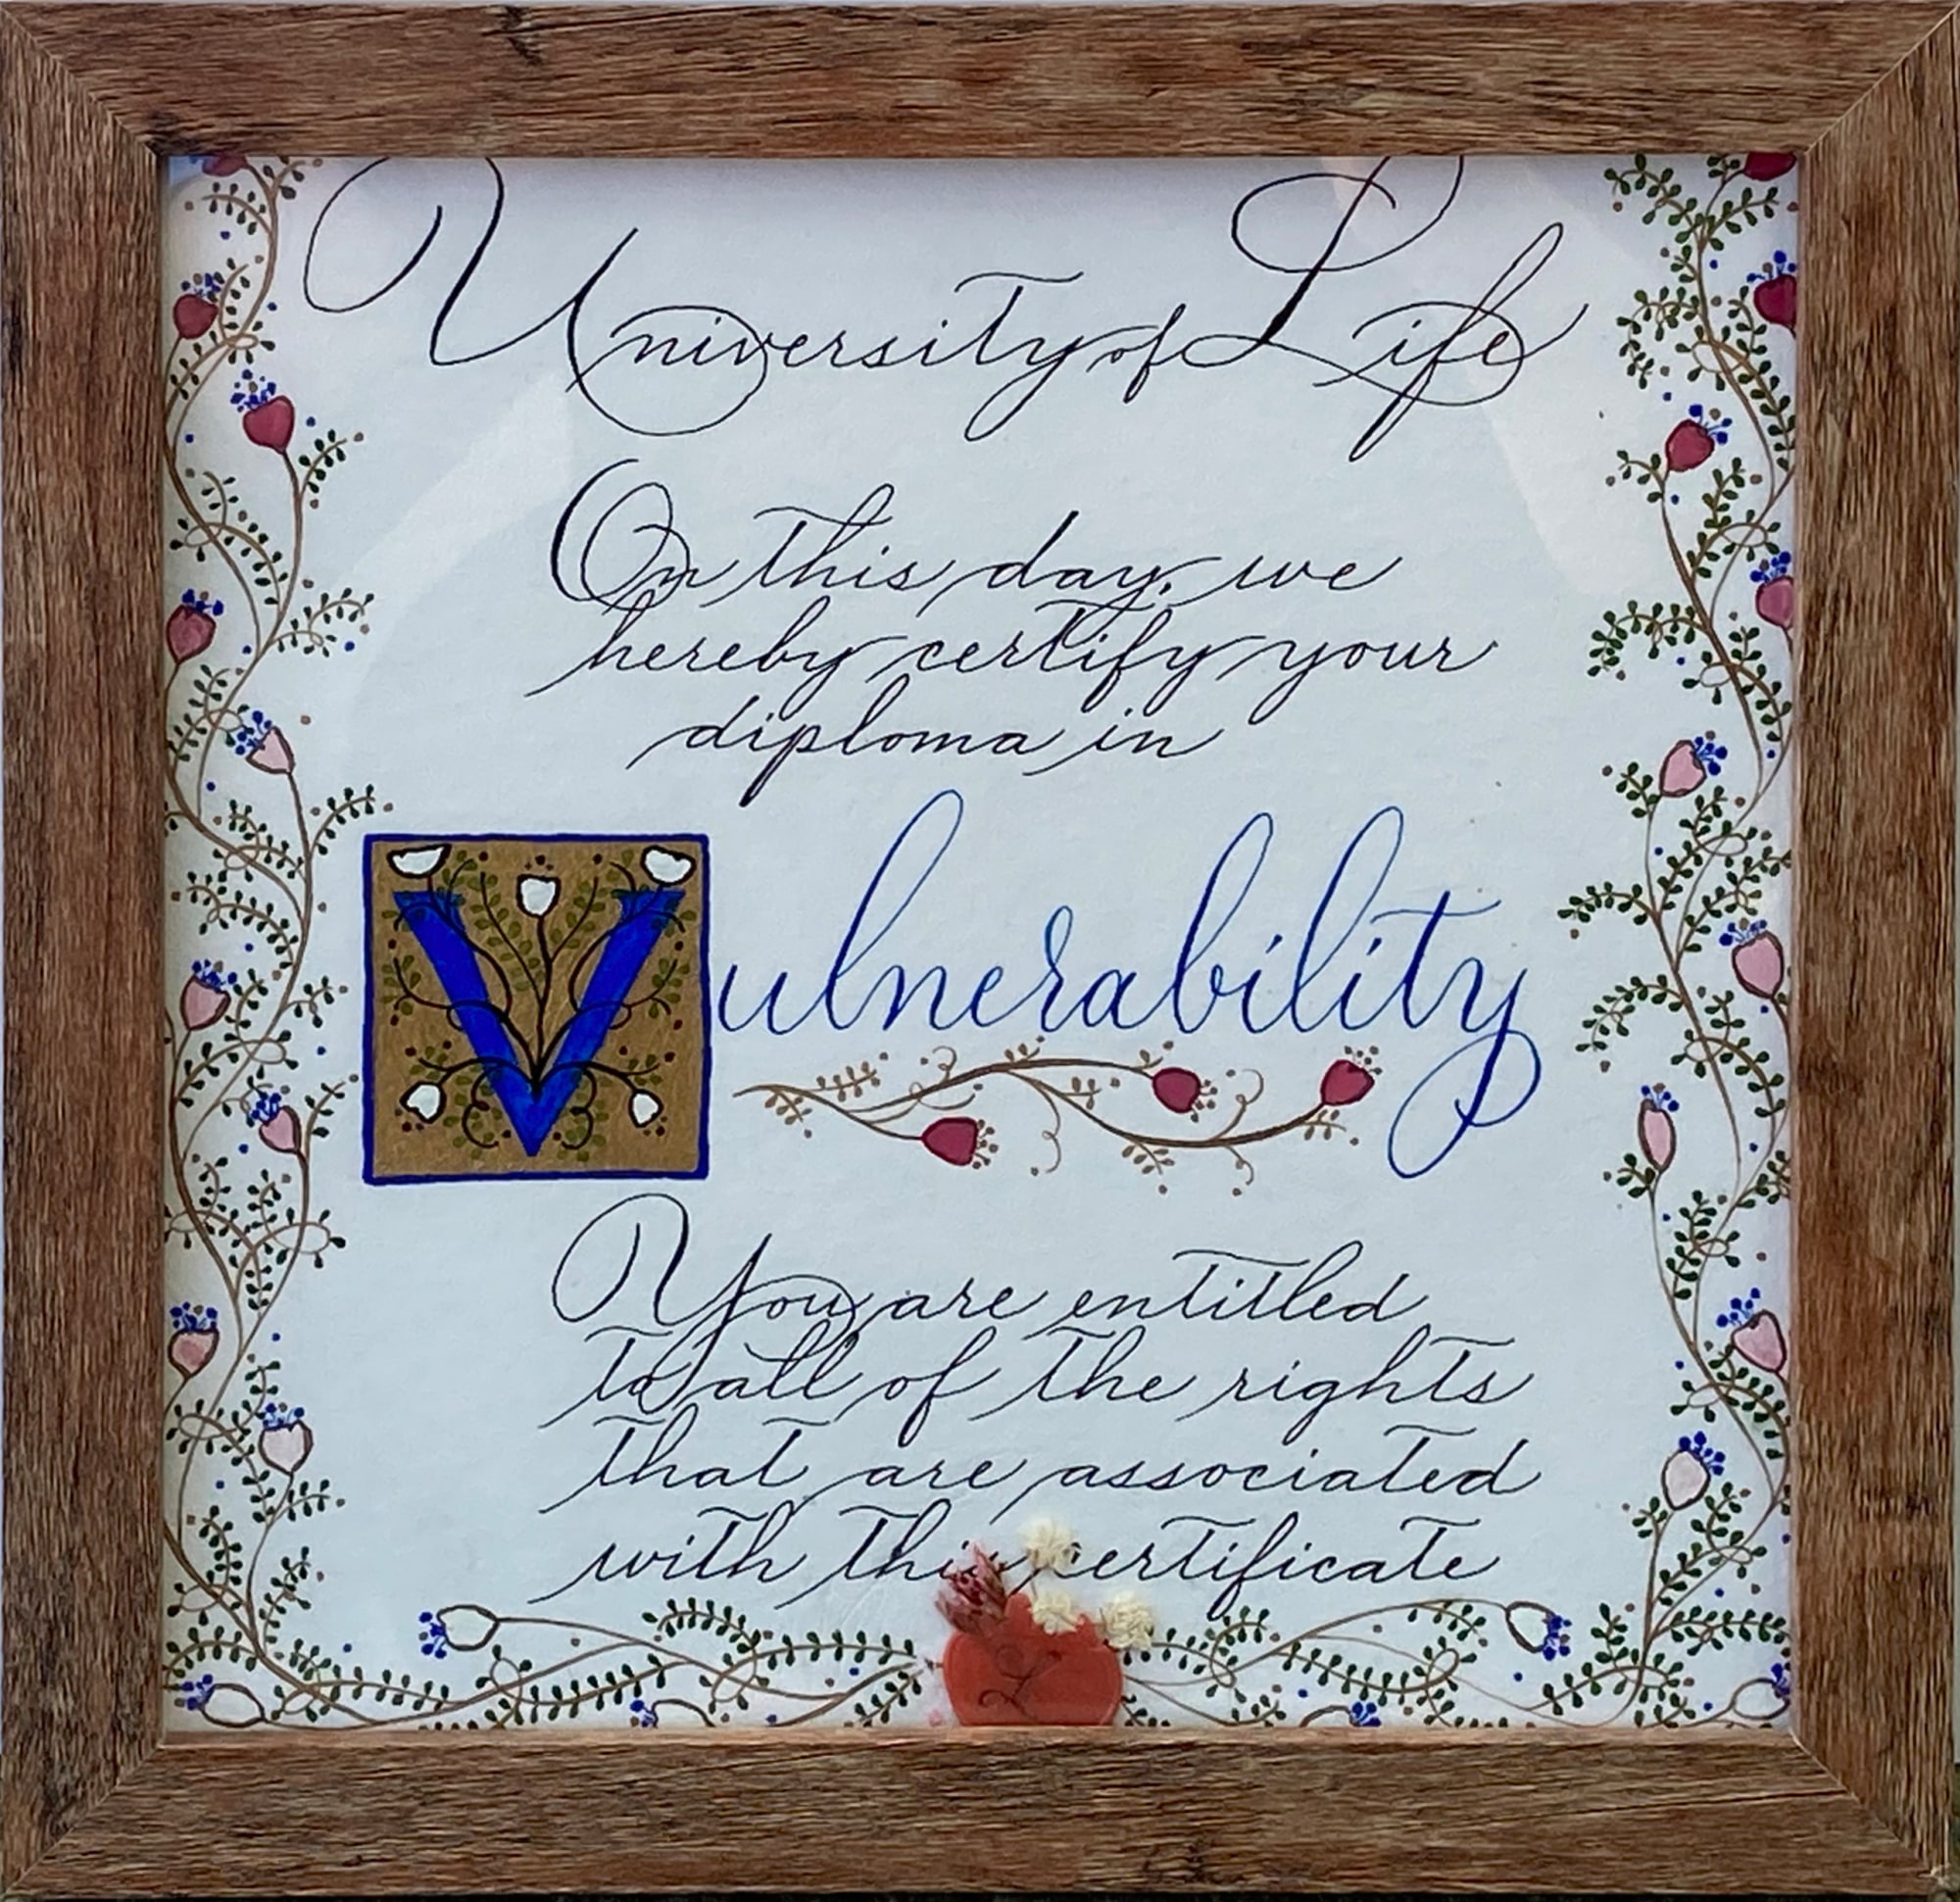 University of Life
On this day, we
hereby certify your
diploma in
Vulnerability
You are entitled
to all of the rights
that are associated
with this certificate